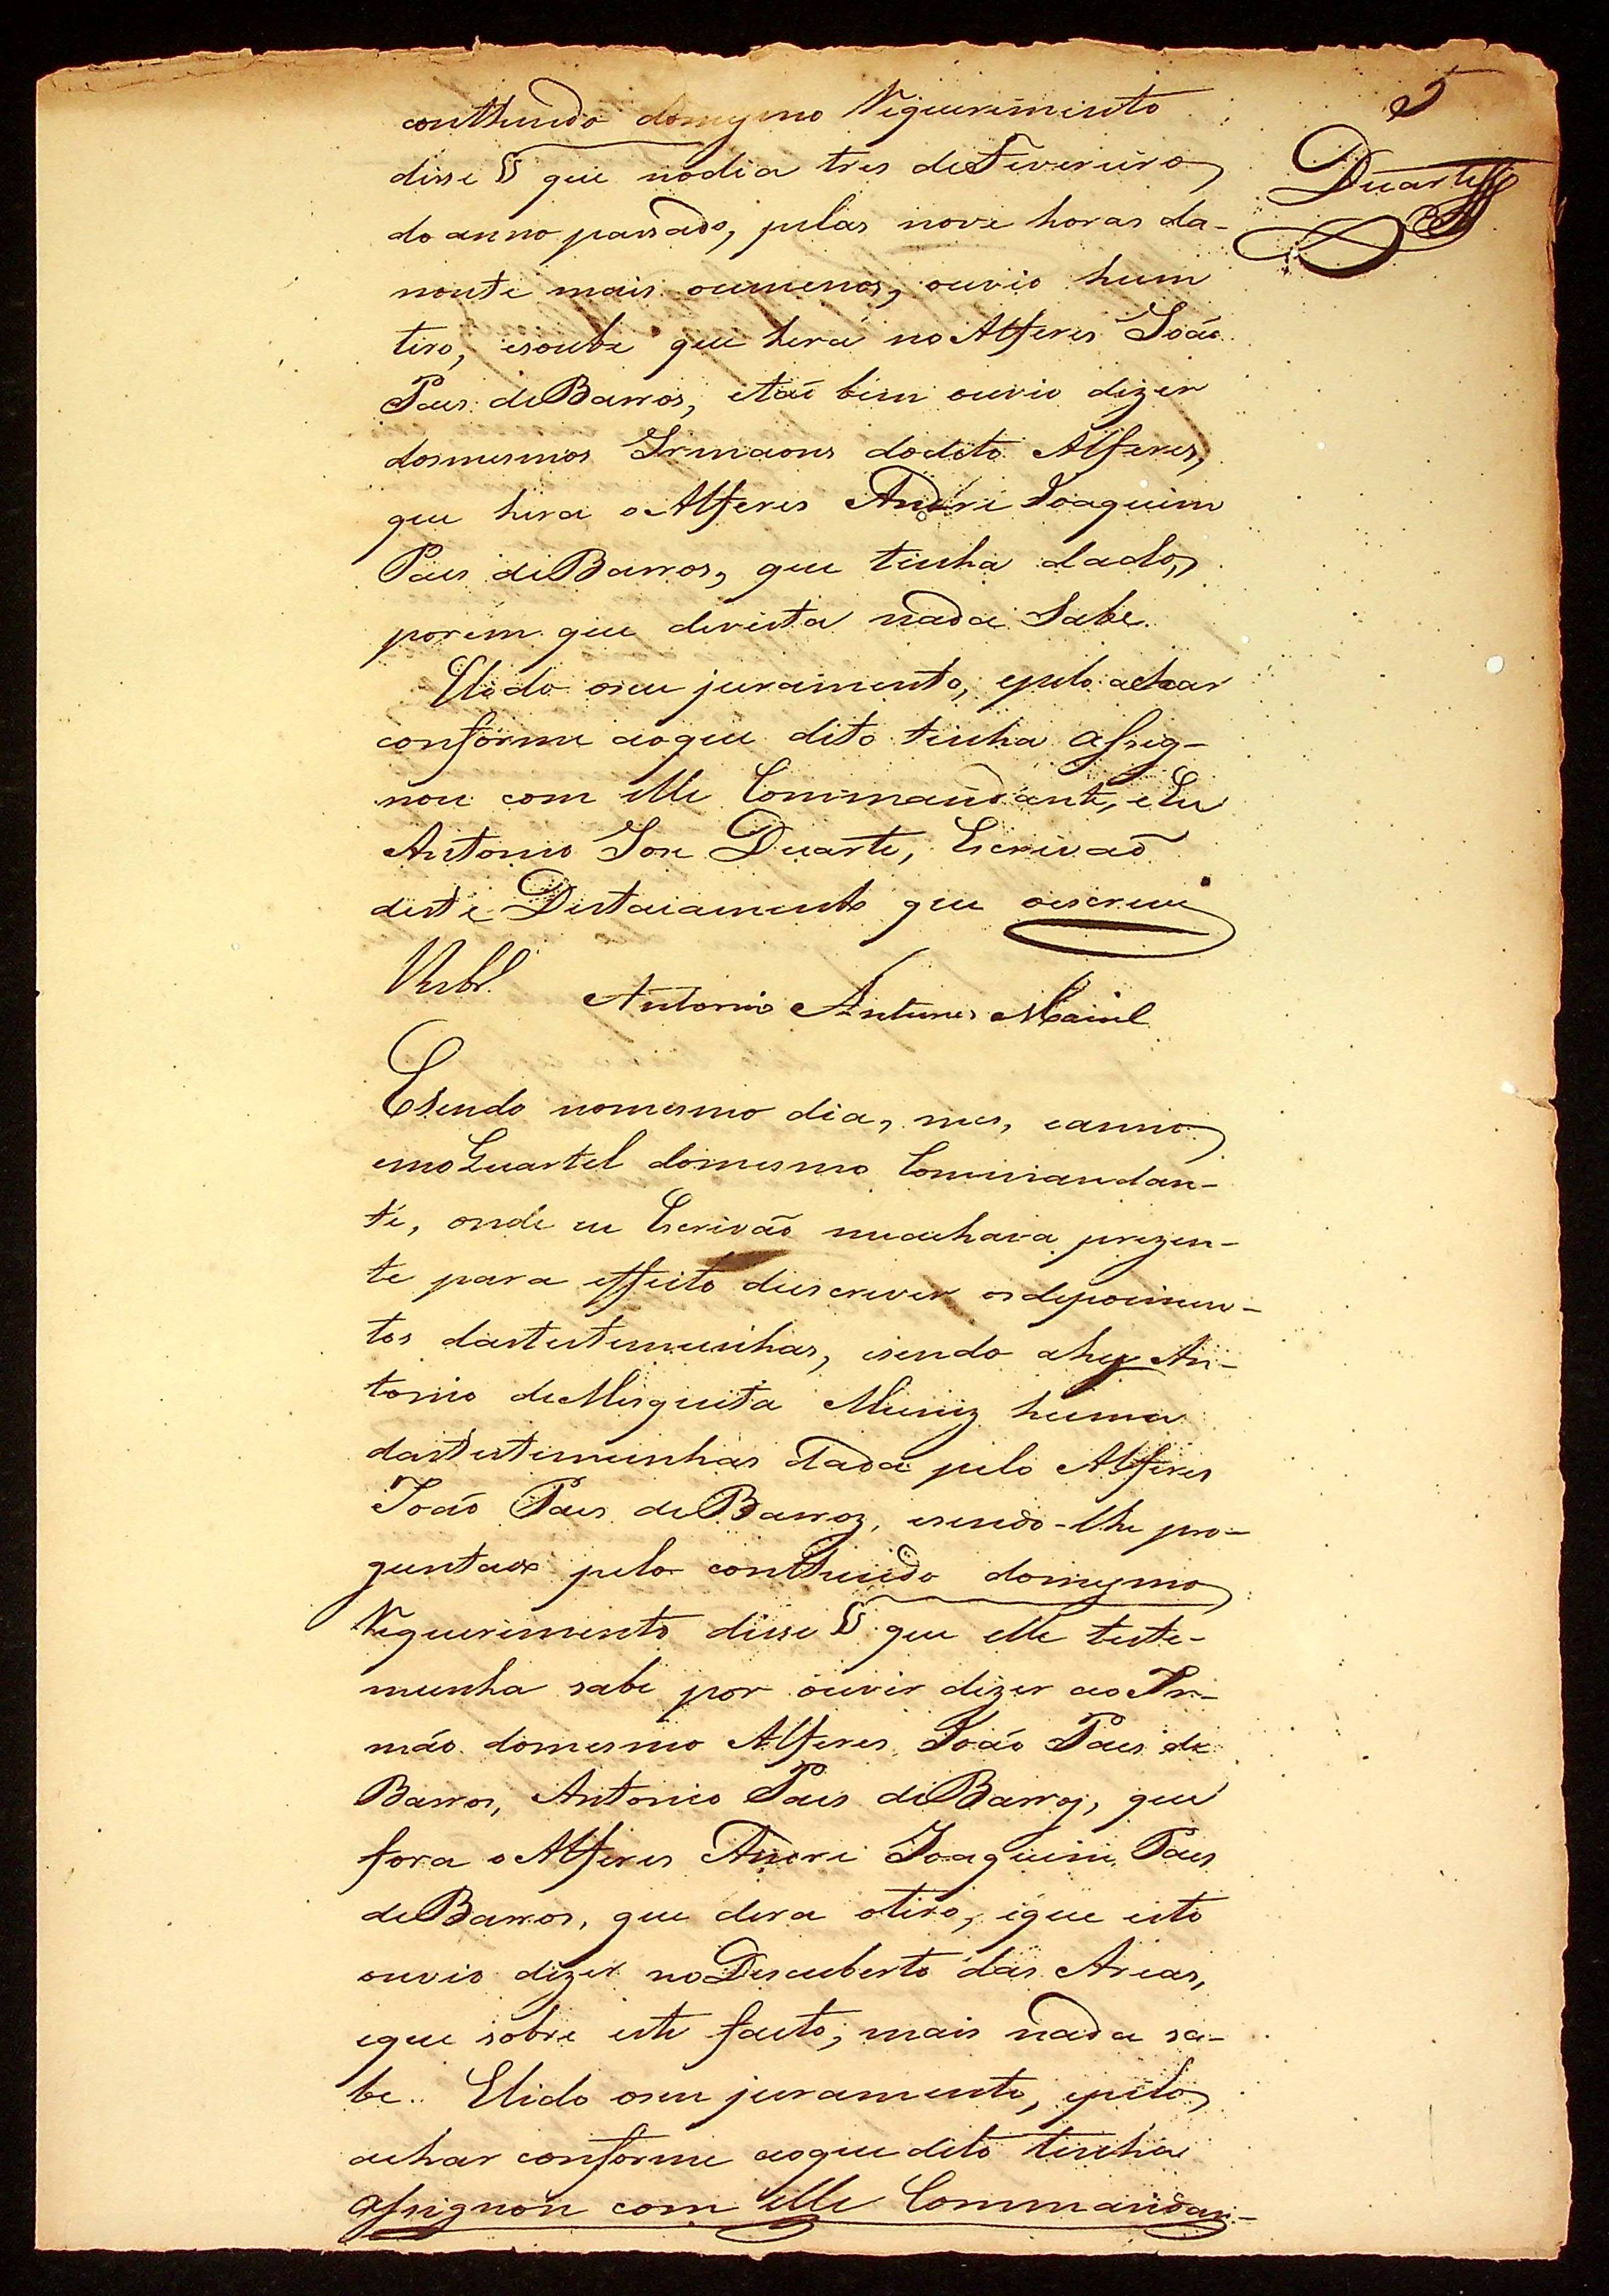 5
Duarte
conthiudo domesmo Requerimento
disse § que nodia tres deFevereiro
do anno passado, pelas nove horas da-
noute mais oumenos, ouvio hum
tiro, esoube que hera no Alferes João
Paes deBarros, etaõ bem ouvio dizer
dosmesmos Irmaons dodito Alferes,
que hera oAlferes Andre Joaquim
Paes deBarros, que tinha dado,
porem que devista nada Sabe.
Elido oseu juramento, epelo achar
conforme aoque dito tinha assig-
nou com elle Commandante, eEu
Antonio Jose Duarte, Escrivaõ
deste Destacamento que oescrevi
Antonio Antunes Maciel
Esendo nomesmo dia, mes, eanno
emoQuartel domesmo Commandan-
te, onde eu Escrivão meachava prezen-
te para effeito deescrever osdepoimen-
tos dastestemunhas, esendo ahy An-
tonio deMesquita Muniz huma
dastestemunhas dada pelo Alferes
João Paes deBarroz, esendo-lhe pro-
guntado pelo conthiudo domesmo
Requerimento disse § que elle teste-
munha sabe por ouvir dizer ao Ir-
mão domesmo Alferes João Paes de
Barros, Antonio Paes deBarroz, que
fora oAlferes Andre Joaquim Paes
deBarros, que dera otiro, eque isto
ouvio dizer noDescuberto das Areas,
eque sobre este facto, mais nada sa-
be. Elido oseu juramento, epelo
achar conforme aoque dito tinha
assignou com elle Commandan-